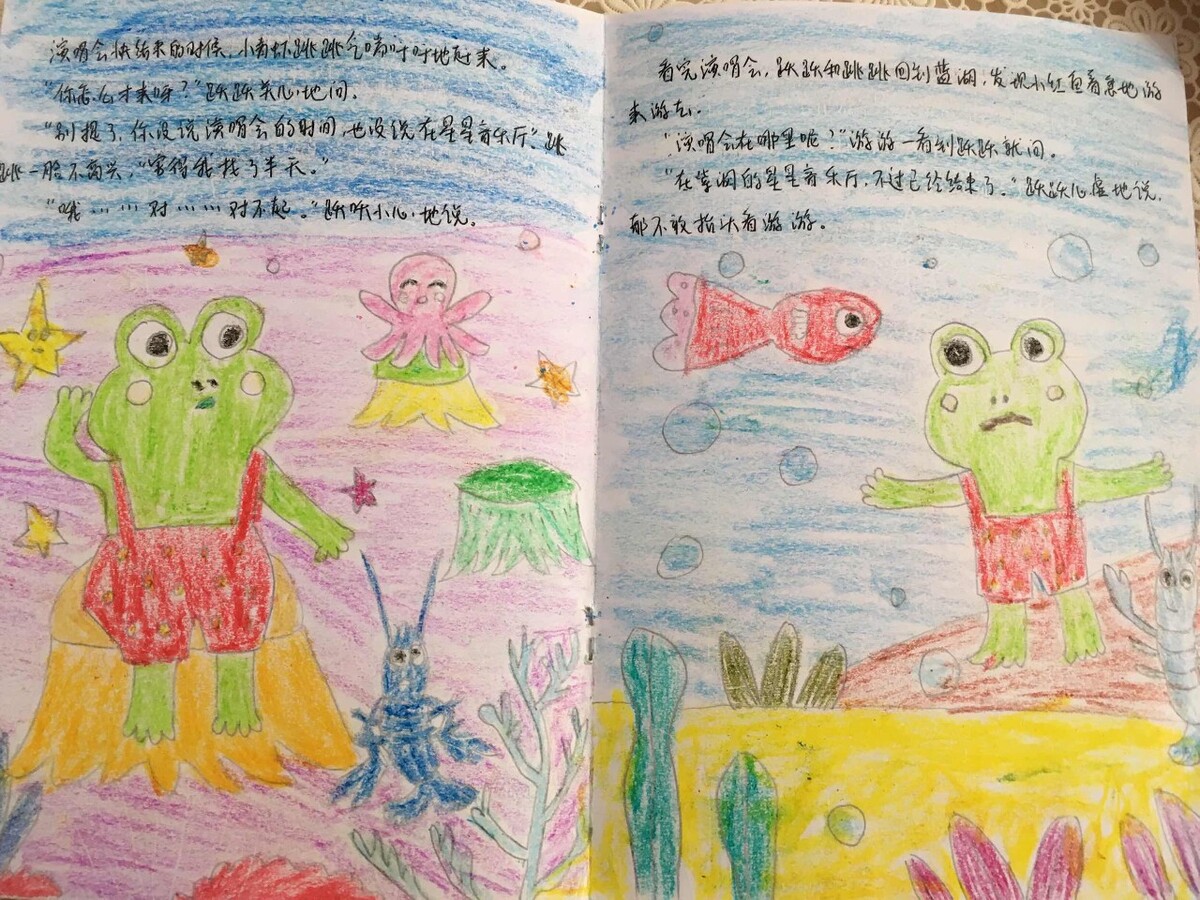 演唱会快结束的时候，小青虾跳跳气喘吁吁地赶来。
“你怎么才来呀？”跃跃关心地问。
“别提了，你没说演唱会的时间，也没说在星星音乐厅”，跳
跳一脸不高兴，“害得我找了半天。”
“哦……对……对不起。”跃跃小心地说。
看完演唱会，跃跃和跳跳回到蓝湖，发现小红鱼着急地游
来游去。
“演唱会在哪里呢？”游游一看到跃跃就问。
“在紫湖的星星音乐厅，不过已经结束了。”跃跃心虚地说，
都不敢抬头看游游。